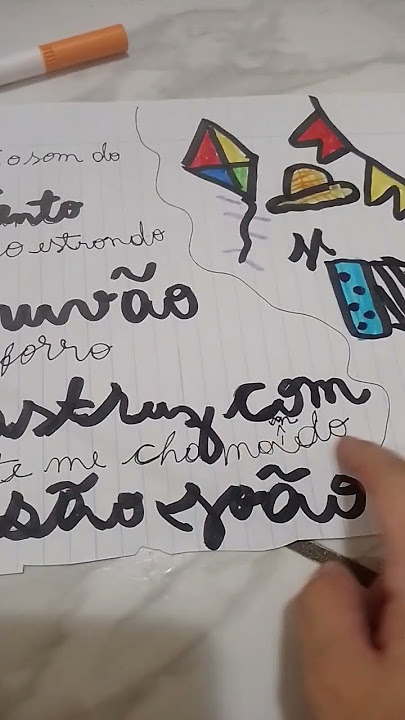 o som do
ento
o estrondo
uvão
forro
struz com
te me chamando
são João